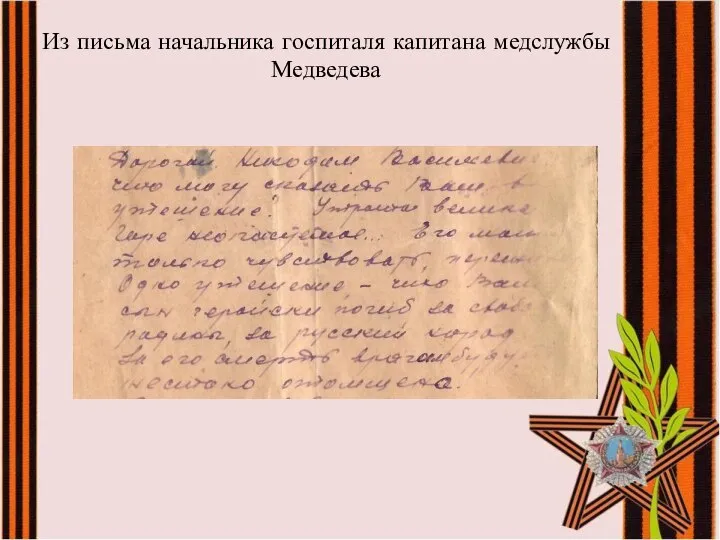 Из письма начальника госпиталя капитана медслужбы
Медведева
Дорогой Никодим Васильевич
что могу сказать Вам в
утешение? Утрата велика
Горе неописуемое... Его мож
только чувствовать,
Одно утешение – что Ваш
сын геройски погиб за свобо
родины, за русский народ
За его смерть врагам буду
жестоко отомщена.